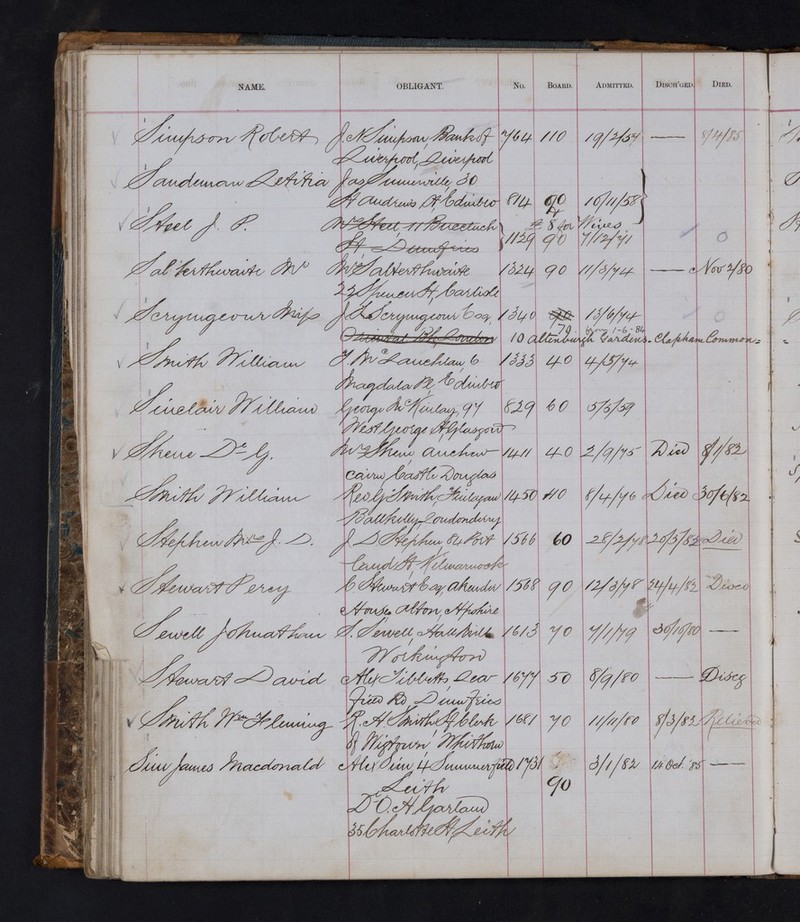 NAME. OBLIGANT. No. BOARD. ADMITTED. DISCH'GED. DIED.
Simpson Robert J. N. Simpson Bank of 764 110 19/2/57 —
Liverpool, Liverpool
Sandeman Letitia Jas Summerville, 30
St Andrews St Edinbro 814 90 10/11/58
Steel J. P. Mrs Steel, 11 Buccleuch £ 8 for Wines
St Dumfries 1129 90 7/12/71
Salkerthwaite Mrs Mrs Salterthwaite 1324 90 11/3/74 — Nov 2/80
Spencer St, Carlisle
Scrymgeour Miss J. Scrymgeour Esq. 1340 13/6/74
79 1-6-84
10 Altenburgh Gardens. Clapham Common
Smith William McLauchlan 6 1333 40 4/5/74
Magdala Pl, Edinbro
Sinclair William George McKinlay, 97 829 60 5/5/59
West George St, Glasgow
Skene De G. Mrs Skene Auchen 1411 40 2/9/75 Died 8/1/82
cairn Castle Douglas
Smith William Rev G. Smith Finlagan 1450 40 8/4/76 Died 30/6/82
Ballkelly, Londonderry
Stephen J. D. J. D. Stephen 1566 60 28/2/78 20/5/82 Died
land St, Kilmarnock
Stewart Percy C Stewart Esq, 1568 90 12/3/78 24/4/82
House Alton, Hpshire
Sewell Johnathan S. Sewell, Hall 1613 70 7/1/79 30/10/80 —
Workington
Stewart David Alex Tibbetts 1677 50 8/9/80 — Disc
field Rd, Dumfries
Smith Wm Fleming R. H. Smith Clerk 1681 70 11/11/80 8/3/82 Relieved
of Wigtown, Whithorn
Sim James Macdonald Alex Sim, 4 Summerfield 1731 3/1/82 14 Oct. 85 —
Leith 90
D. O. H Garland
35 Charlotte St, Leith